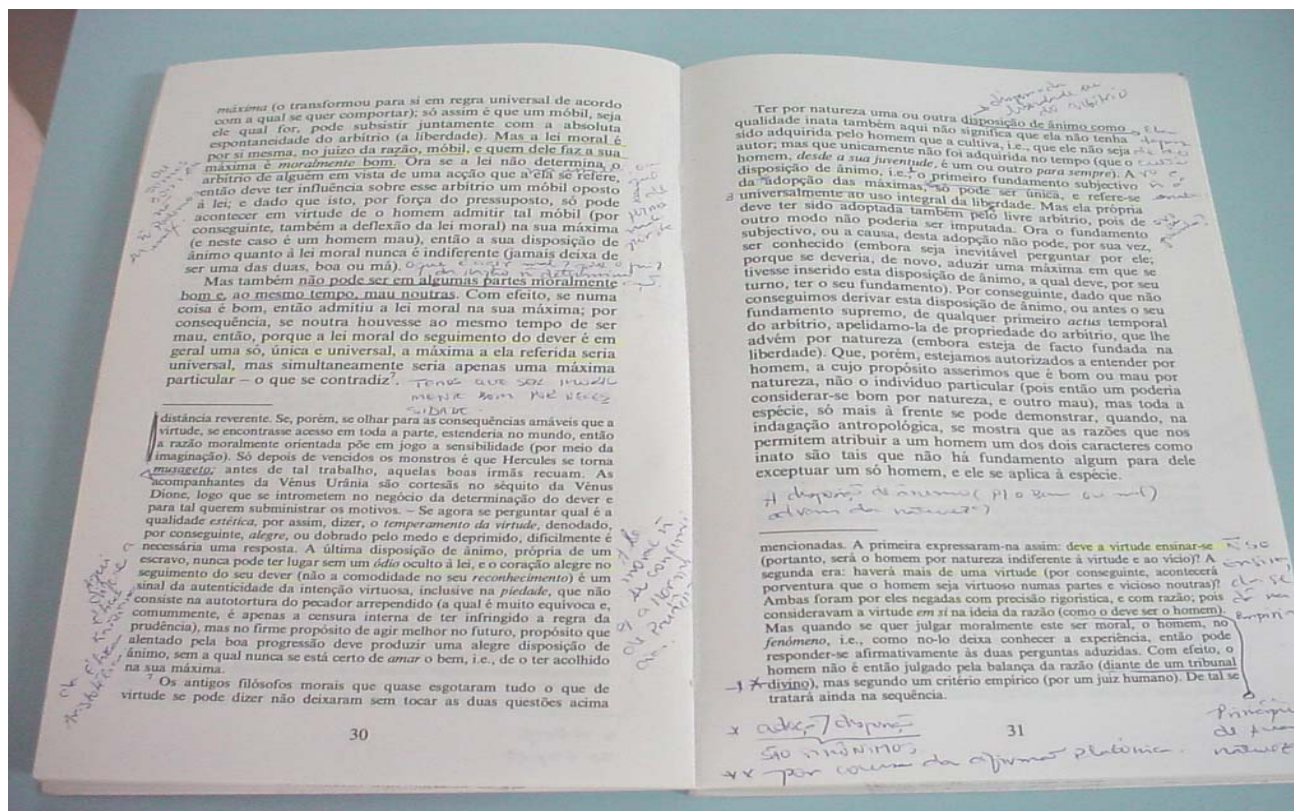 máxima (o transformou para si em regra universal de acordo
com a qual se quer comportar); só assim é que um móbil, seja
ele qual for, pode subsistir juntamente com a absoluta
espontaneidade do arbítrio (a liberdade). Mas a lei moral é
por si mesma, no juízo da razão, móbil, e quem dele faz a sua
máxima é moralmente bom. Ora se a lei não determina, o
arbítrio de alguém em vista de uma acção que a ela se refere,
então deve ter influência sobre esse arbítrio um móbil oposto
à lei; e dado que isto, por força do pressuposto, só pode
acontecer em virtude de o homem admitir tal móbil (por
conseguinte, também a deflexão da lei moral) na sua máxima
(e neste caso é um homem mau), então a sua disposição de
ânimo quanto à lei moral nunca é indiferente (jamais deixa de
ser uma das duas, boa ou má).
Mas também não pode ser em algumas partes moralmente
bom e, ao mesmo tempo, mau noutras. Com efeito, se numa
coisa é bom, então admitiu a lei moral na sua máxima; por
consequência, se noutra houvesse ao mesmo tempo de ser
mau, então, porque a lei moral do seguimento do dever é em
geral uma só, única e universal, a máxima a ela referida seria
universal, mas simultaneamente seria apenas uma máxima
particular – o que se contradiz⁷. TEMOS QUE SER
MENTE BOM POR NECES
SIDADE.
distância reverente. Se, porém, se olhar para as consequências amáveis que a
virtude, se encontrasse acesso em toda a parte, estenderia no mundo, então
a razão moralmente orientada põe em jogo a sensibilidade (por meio da
imaginação). Só depois de vencidos os monstros é que Hercules se torna
musageto; antes de tal trabalho, aquelas boas irmãs recuam. As
acompanhantes da Vénus Urânia são cortesãs no séquito da Vénus
Dione, logo que se intrometem no negócio da determinação do dever e
para tal querem subministrar os motivos. – Se agora se perguntar qual é a
qualidade estética, por assim, dizer, o temperamento da virtude, denodado,
por conseguinte, alegre, ou dobrado pelo medo e deprimido, dificilmente é
necessária uma resposta. A última disposição de ânimo, própria de um
escravo, nunca pode ter lugar sem um ódio oculto à lei, e o coração alegre no
seguimento do seu dever (não a comodidade no seu reconhecimento) é um
sinal da autenticidade da intenção virtuosa, inclusive na piedade, que não
consiste na autotortura do pecador arrependido (a qual é muito equívoca e,
comummente, é apenas a censura interna de ter infringido a regra da
prudência), mas no firme propósito de agir melhor no futuro, propósito que
alentado pela boa progressão deve produzir uma alegre disposição de
ânimo, sem a qual nunca se está certo de amar o bem, i.e., de o ter acolhido
na sua máxima.
⁷ Os antigos filósofos morais que quase esgotaram tudo o que de
virtude se pode dizer não deixaram sem tocar as duas questões acima
30
Ter por natureza uma ou outra disposição de ânimo como
qualidade inata também aqui não significa que ela não tenha
sido adquirida pelo homem que a cultiva, i.e., que ele não seja
autor; mas que unicamente não foi adquirida no tempo (que o
homem, desde a sua juventude, é um ou outro para sempre). A
disposição de ânimo, i.e., o primeiro fundamento subjectivo
da adopção das máximas, só pode ser única, e refere-se
universalmente ao uso integral da liberdade. Mas ela própria
deve ter sido adoptada também pelo livre arbítrio, pois de
outro modo não poderia ser imputada. Ora o fundamento
subjectivo, ou a causa, desta adopção não pode, por sua vez,
ser conhecido (embora seja inevitável perguntar por ele;
porque se deveria, de novo, aduzir uma máxima em que se
tivesse inserido esta disposição de ânimo, a qual deve, por seu
turno, ter o seu fundamento). Por conseguinte, dado que não
conseguimos derivar esta disposição de ânimo, ou antes o seu
fundamento supremo, de qualquer primeiro actus temporal
do arbítrio, apelidamo-la de propriedade do arbítrio, que lhe
advém por natureza (embora esteja de facto fundada na
liberdade). Que, porém, estejamos autorizados a entender por
homem, a cujo propósito asserimos que é bom ou mau por
natureza, não o indivíduo particular (pois então um poderia
considerar-se bom por natureza, e outro mau), mas toda a
espécie, só mais à frente se pode demonstrar, quando, na
indagação antropológica, se mostra que as razões que nos
permitem atribuir a um homem um dos dois caracteres como
inato são tais que não há fundamento algum para dele
exceptuar um só homem, e ele se aplica à espécie.
A disposição de ânimo (p/ o bem ou mal)
advém da natureza?)
mencionadas. A primeira expressaram-na assim: deve a virtude ensinar-se
(portanto, será o homem por natureza indiferente à virtude e ao vício)? A
segunda era: haverá mais de uma virtude (por conseguinte, acontecerá
porventura que o homem seja virtuoso numas partes e vicioso noutras)?
Ambas foram por eles negadas com precisão rigorística, e com razão; pois
consideravam a virtude em si na ideia da razão (como o deve ser o homem).
Mas quando se quer julgar moralmente este ser moral, o homem, no
fenómeno, i.e., como no-lo deixa conhecer a experiência, então pode
responder-se afirmativamente às duas perguntas aduzidas. Com efeito, o
homem não é então julgado pela balança da razão (diante de um tribunal
divino), mas segundo um critério empírico (por um juiz humano). De tal se
tratará ainda na sequência.
31
SÃO SINÔNIMOS
** por causa da afirmação platônica.